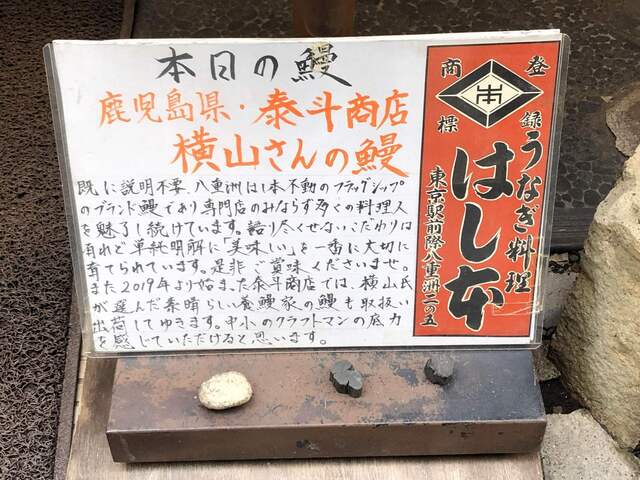 本日の鰻
鹿児島県・泰斗商店
横山さんの鰻
既に説明不要、八重洲はし本不動のフラッグシップ
のブランド鰻であり専門店のみならず多くの料理人
を魅了し続けています。語り尽くせないこだわりは
有れど単純明解に「美味しい」を一番に大切に
育てられています。是非ご賞味くださいませ。
また2019年より始まった泰斗商店では、横山氏
が選んだ素晴らしい養鰻家の鰻も取扱い
出荷してゆきます。中小のクラフトマンの底力
を感じていただけると思います。
登録
商標
本
うなぎ料理
はし本
東京駅前際八重洲二の五